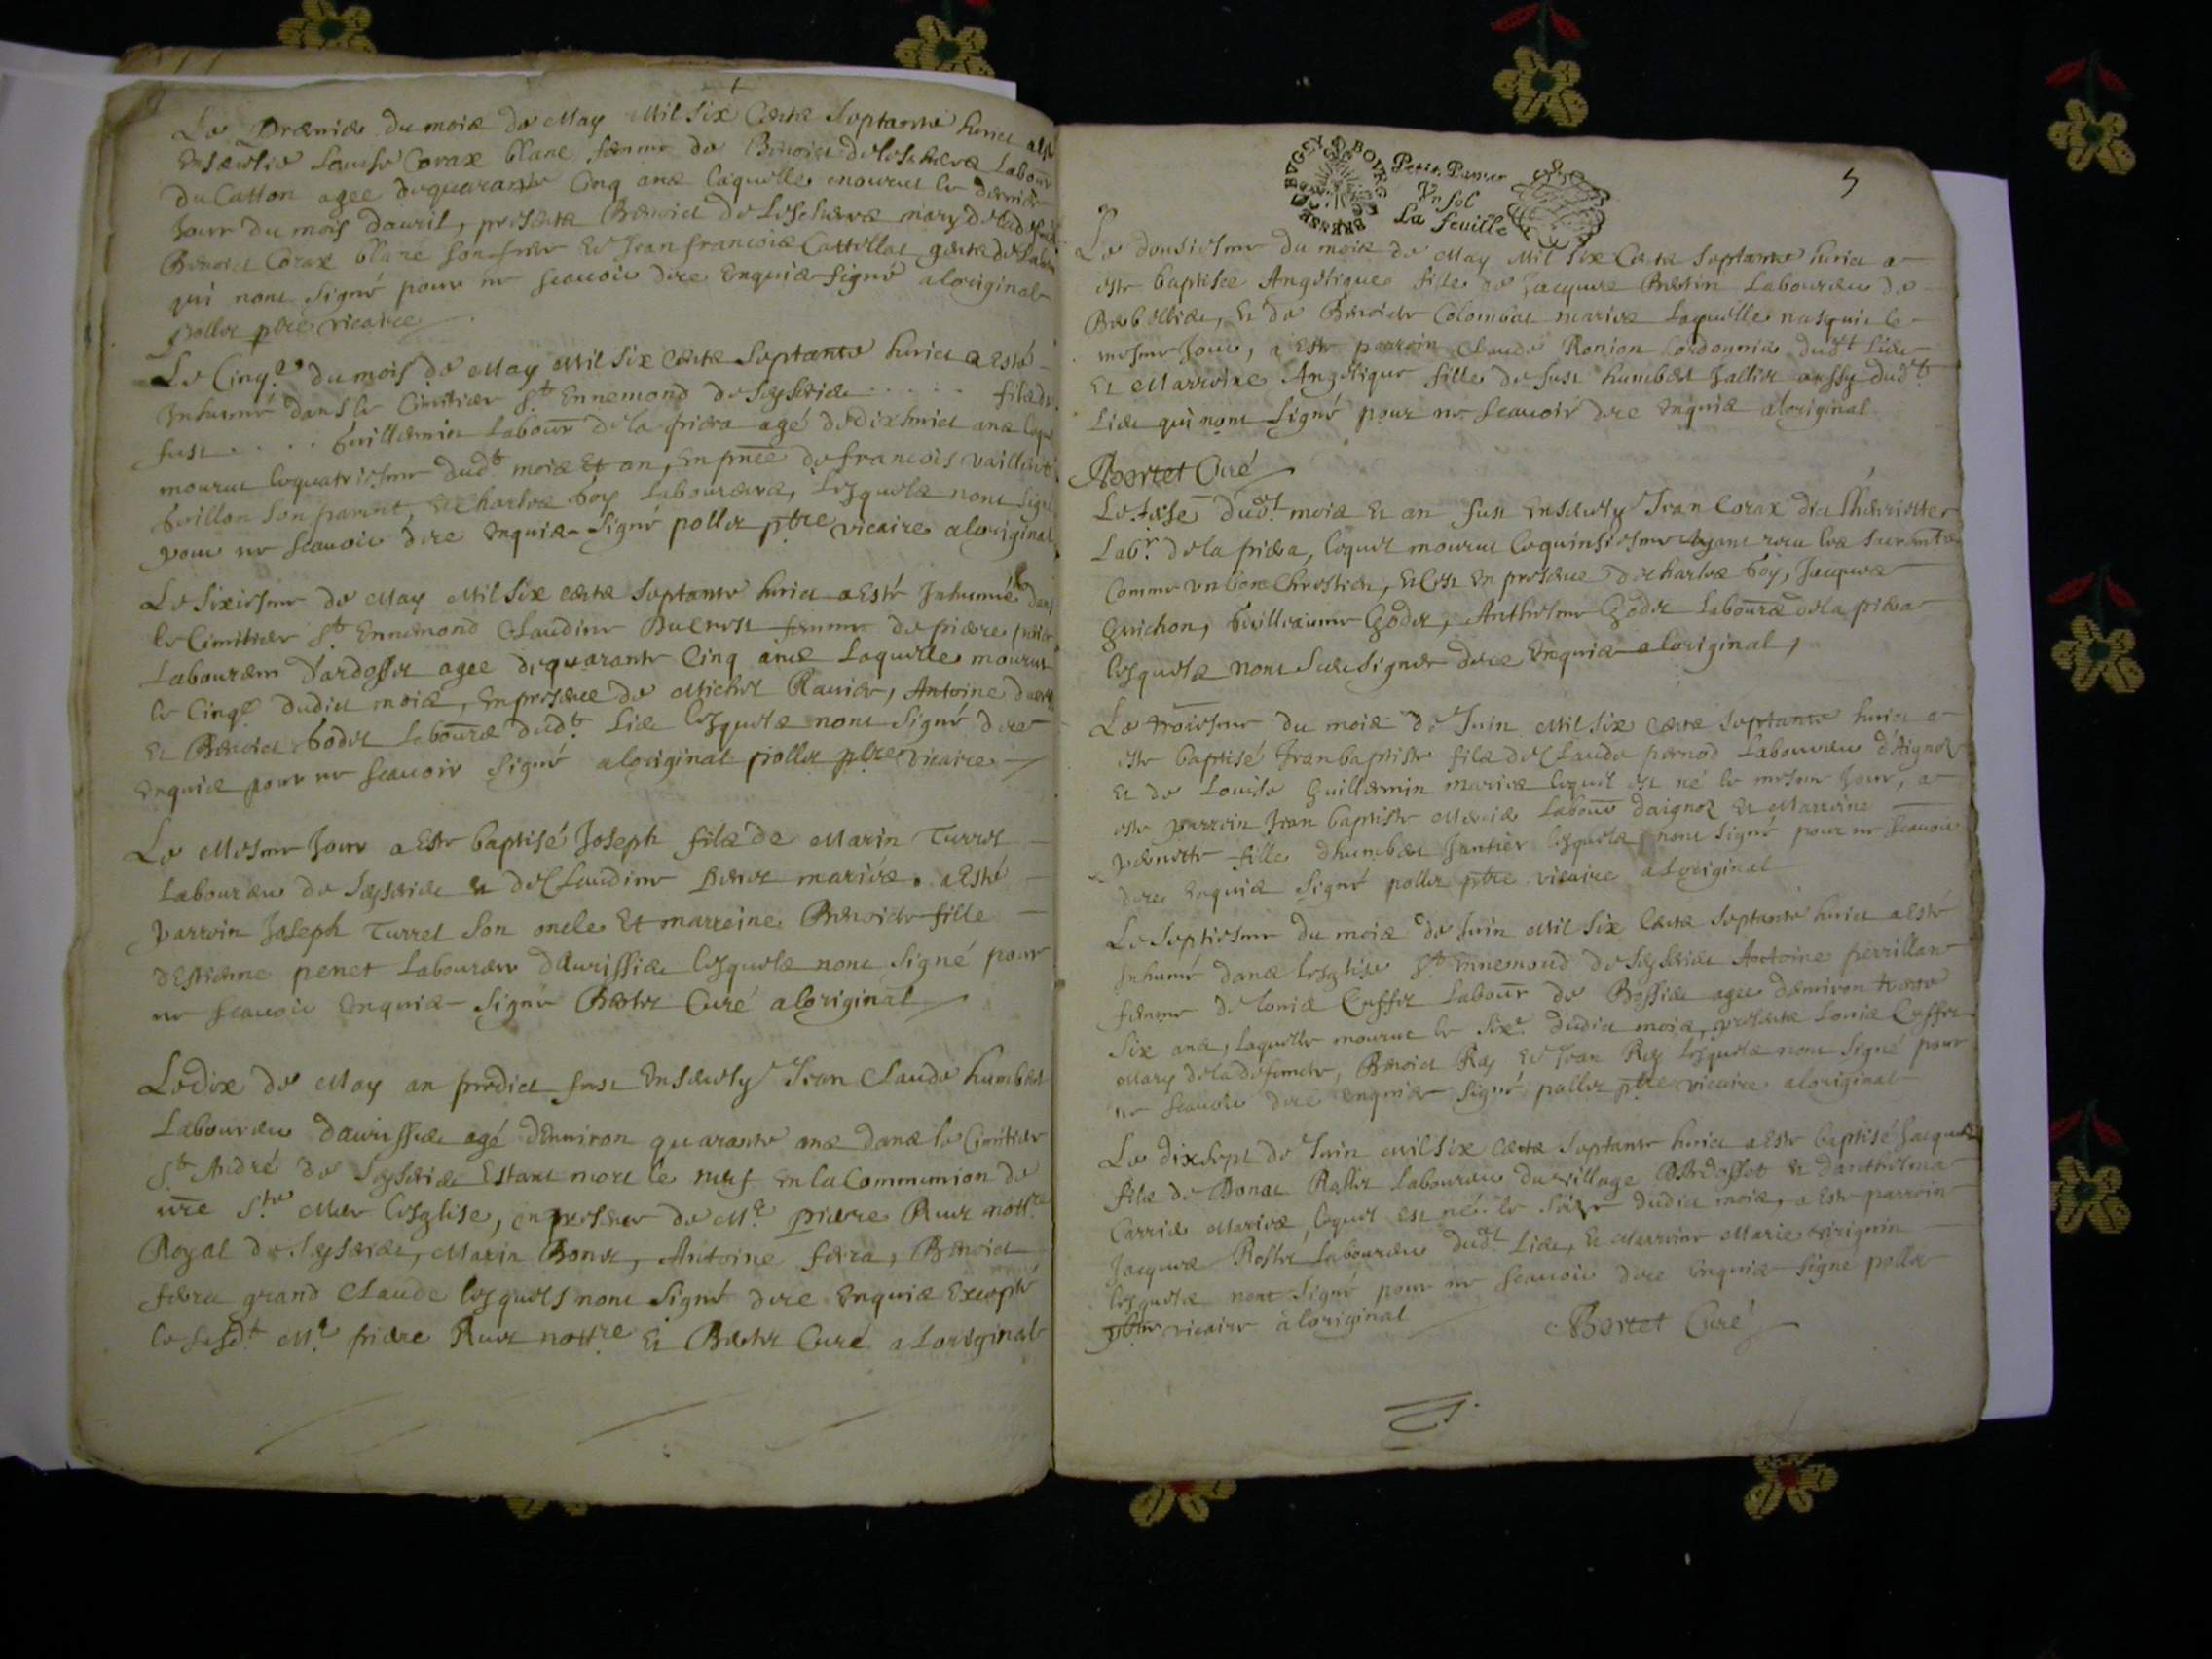 Le Premier du mois de May Mil Six Cents Septante huict a esté
Ensevelie Louise Corax blanc femme de Benoict Labour
Du Catton agee de quarante Cinq ans laquelle mourut le dernier
Jour du mois dauril, presents Benoict mary de la
Benoict Corax blanc son frere Et Jean francois Cattellat
qui nont Signé pour ne scauoir de ce Enquis Signé a loriginal
poller ptre vicaire
Le Cinq.e du mois de May Mil Six Cents Septante huict a Esté
Inhumé dans le Cimitier S.t Ennemond de Seyserieu ..... fils de
fust .... Guillermin Labour de la agé de dix huict ans
mourut le quatriesme dud.t mois Et an, En pnce de francois
Guillon Son parent, Et Charles Goy Laboureurs, lesquels nont Signé
pour ne scauoir de ce Enquis Signé poller ptre vicaire a loriginal
Le Sixiesme de May Mil Six cents Septante huict a Esté Inhumée dans
le Cimitier S.t Ennemond Claudine femme de pierre
Laboureur Dardosset agee de quarante Cinq ans Laquelle mourut
le Cinq.e dudict mois, En presence de Michel Rauier, Antoine
Et Benoict Godet Laboure dud.t Lieu lesquels nont Signé de ce
Enquis pour ne scauoir Signé a loriginal poller ptre vicaire
Le Mesme Jour a Esté baptisé Joseph fils de Marin Turrel
Laboureur de Seyserieu Et de Claudine mariés. a Esté
parroin Joseph Turrel Son oncle Et marreine Benoicte fille
dEstienne penet Laboureur dAurissieu lesquels nont Signé pour
ne scauoir Enquis Signé Bertet Curé a loriginal
Le dix de May an predict fust Enseuely Jean Claude humbert
Laboureur daurissieu agé dEnuiron quarante ans dans le Cimitier
S.t André de Seyserieu Estant mort le neuf En la Communion de
nre S.te Mere Lesglise, en presence de M.e pierre Ruet nott.re
Royal de Seyserieu, Marin Bonet, Antoine ferra, Benoict
ferra grand Claude lesquels nont Signé de ce Enquis Excepté
le susd.t M.e pierre Ruet nott.re Et Bertet Curé a Loriginal
5
BRESSE BVGEY BOVRG
Petit Papier
Vn sol
La feuille
Le dousiesme du mois de May Mil Six Cents Septante huict a
esté baptisée Angelique fille de Jacques Bertin Laboureur de
Et de Benoicte Colombat mariés Laquelle nasquit le
mesme Jour, a Esté parroin Claude Ronjon Cordonnier dud.t Lieu
Et Marroine Angelique fille de fust humbert Jallict aussy dud.t
Lieu qui nont Signé pour ne scauoir de ce enquis a loriginal
Bertet Curé
Le dud.t mois Et an fust Enseuely Jean Corax dict
Lab.r de la lequel mourut le quinsiesme ayant receu les
Comme vn bon Chrestien, Et Cest En presence de Charles Goy, Jacques
Guichon, Guilleaume Godet, Anthelme Godet Laboure de la
lesquels nont Sceu Signer de ce Enquis a loriginal
Le troisiesme du mois de Juin Mil Six Cents Septante huict a
esté baptisé Jean baptiste fils de Claude pernod Laboureur dAignoz
Et de Louise Guillermin mariés lequel est né le mesme Jour, a
esté parroin Jean baptiste Mercier Labour daignoz Et Marroine
pernette fille dhumbert Jantier lesquels nont Signé pour ne scauoir
de ce Enquis Signé poller ptre vicaire a Loriginal
Le Septiesme du mois de Juin Mil Six Cents Septante huict a Esté
Inhumé dans lesglise S.t Ennemond de Seyserieu Antoine perrillan
femme de Louis Cuffet Labour de Bossieu agee denuiron trente
Six ans, Laquelle mourut le Six.e dudict mois, presents Louis Cuffet
Mary de la defuncte, Benoict Rey Et Jean Rey lesquels nont Signé pour
ne scauoir de ce enquis Signé poller ptre vicaire a loriginal
Le dixsept de Juin mil Six Cents Septante huict a Esté baptisé Jacques
fils de Donat Rosset Laboureur du village dArdosset Et danthelma
Carrier Mariés, lequel est né le dudict mois, a Esté parroin
Jacques Rosset Laboureur dud.t Lieu, Et Marroine Marie virignin
lesquels nont Signé pour ne scauoir de ce Enquis Signé poller
ptre vicaire a loriginal
Bertet Curé